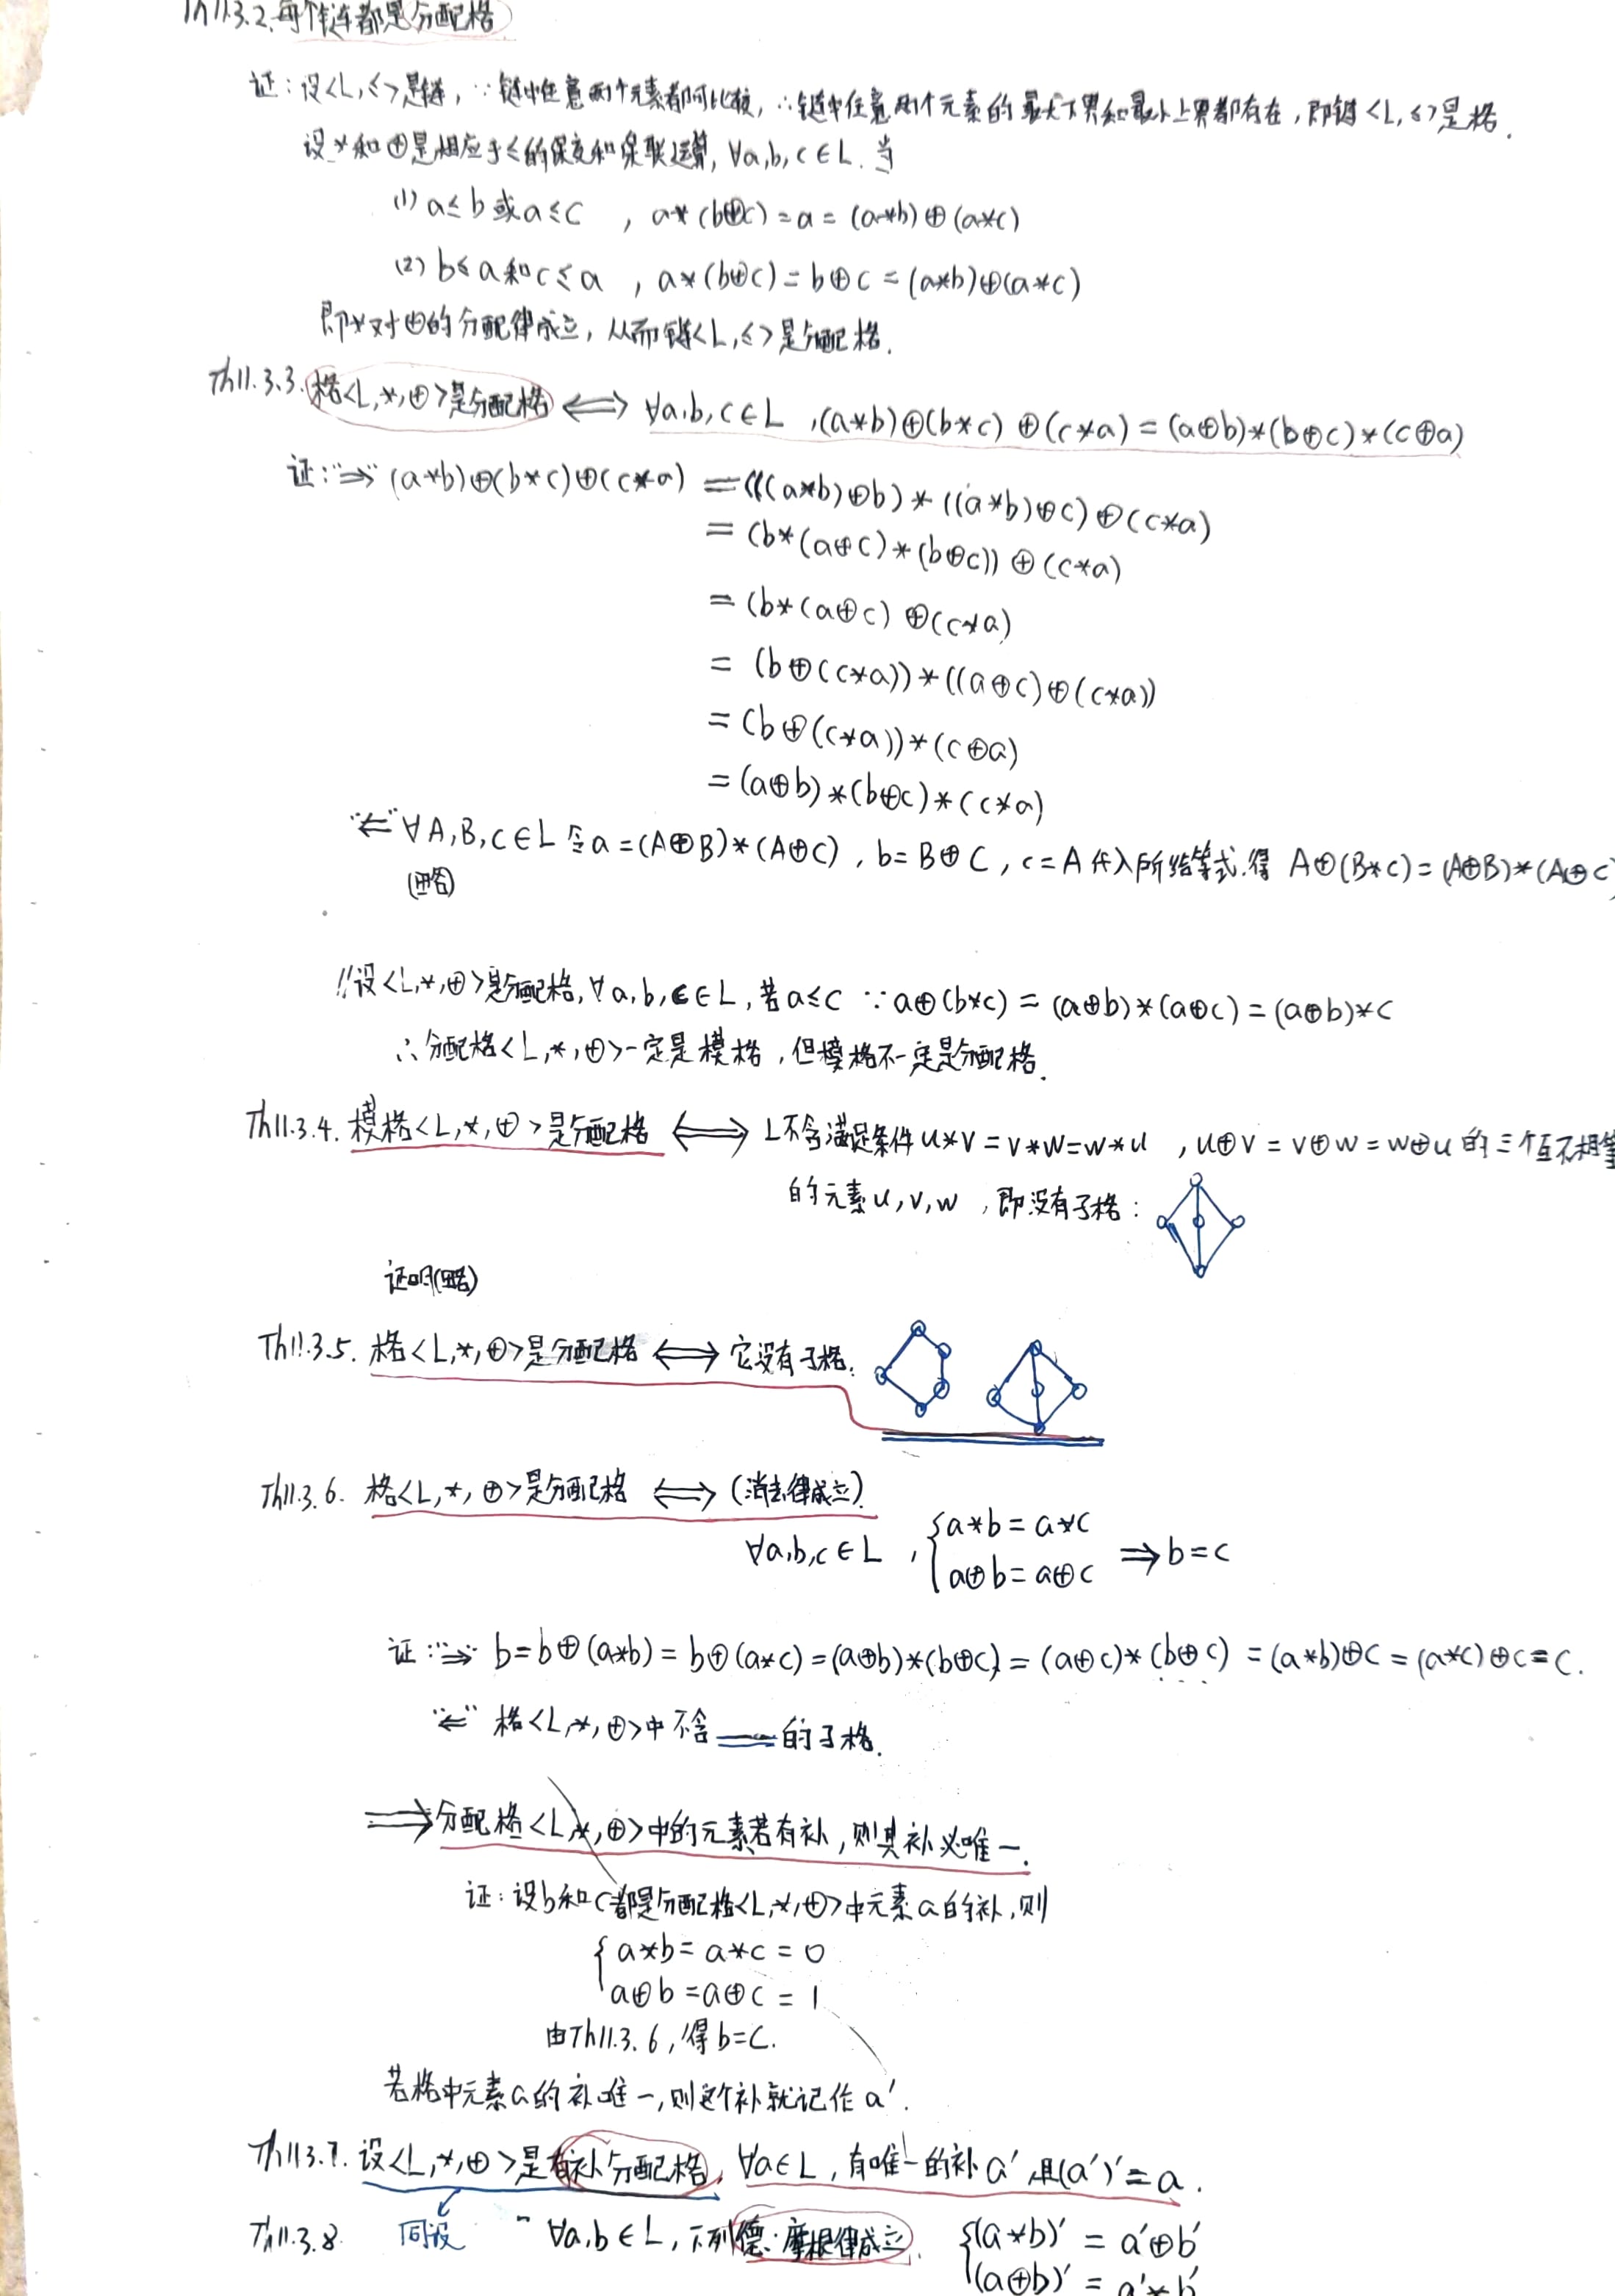 Th11.3.2.每个链都是分配格
证:设<L,≤>是链,∵链中任意两个元素都可比较,∴链中任意两个元素的最大下界和最小上界都存在,即链<L,≤>是格.
设*和⊕是相应于≤的保交和保联运算,∀a,b,c∈L.当
(1) a≤b或a≤c , a*(b⊕c)=a=(a*b)⊕(a*c)
(2) b≤a和c≤a , a*(b⊕c)=b⊕c=(a*b)⊕(a*c)
即*对⊕的分配律成立,从而链<L,≤>是分配格.
Th11.3.3.格<L,*,⊕>是分配格 ⟺ ∀a,b,c∈L ,(a*b)⊕(b*c)⊕(c*a)=(a⊕b)*(b⊕c)*(c⊕a)
证:"⇒" (a*b)⊕(b*c)⊕(c*a) =(((a*b)⊕b)*((a*b)⊕c)⊕(c*a)
=(b*(a⊕c)*(b⊕c))⊕(c*a)
=(b*(a⊕c)⊕(c*a)
=(b⊕(c*a))*((a⊕c)⊕(c*a))
=(b⊕(c*a))*(c⊕a)
=(a⊕b)*(b⊕c)*(c*a)
"⇐" ∀A,B,C∈L 令a=(A⊕B)*(A⊕C) , b=B⊕C , c=A代入所给等式.得 A⊕(B*C)=(A⊕B)*(A⊕C)
(略)
//设<L,*,⊕>是分配格,∀a,b,c∈L,若a≤c ∵a⊕(b*c)=(a⊕b)*(a⊕c)=(a⊕b)*c
∴分配格<L,*,⊕>一定是模格,但模格不一定是分配格.
Th11.3.4.模格<L,*,⊕>是分配格 ⟺ L不含满足条件u*v=v*w=w*u ,u⊕v=v⊕w=w⊕u的三个互不相等
的元素u,v,w ,即没有子格:
证明(略)
Th11.3.5.格<L,*,⊕>是分配格 ⟺ 它没有子格:
Th11.3.6. 格<L,*,⊕>是分配格 ⟺ (消去律成立).
∀a,b,c∈L ,{a*b=a*c
a⊕b=a⊕c ⇒b=c
证:"⇒" b=b⊕(a*b)=b⊕(a*c)=(a⊕b)*(b⊕c)=(a⊕c)*(b⊕c)=(a*b)⊕c=(a*c)⊕c=c.
"⇐" 格<L,*,⊕>中不含 的子格.
⟹分配格<L,*,⊕>中的元素若有补,则其补必唯一.
证:设b和c都是分配格<L,*,⊕>中元素a的补,则
{a*b=a*c=0
a⊕b=a⊕c=1
由Th11.3.6,得b=c.
若格中元素a的补唯一,则这个补就记作a'.
Th11.3.7.设<L,*,⊕>是有补分配格,∀a∈L,有唯一的补a',且(a')'=a.
Th11.3.8. 同设 ∀a,b∈L,下列德·摩根律成立. {(a*b)'=a'⊕b'
(a⊕b)'=a'*b'